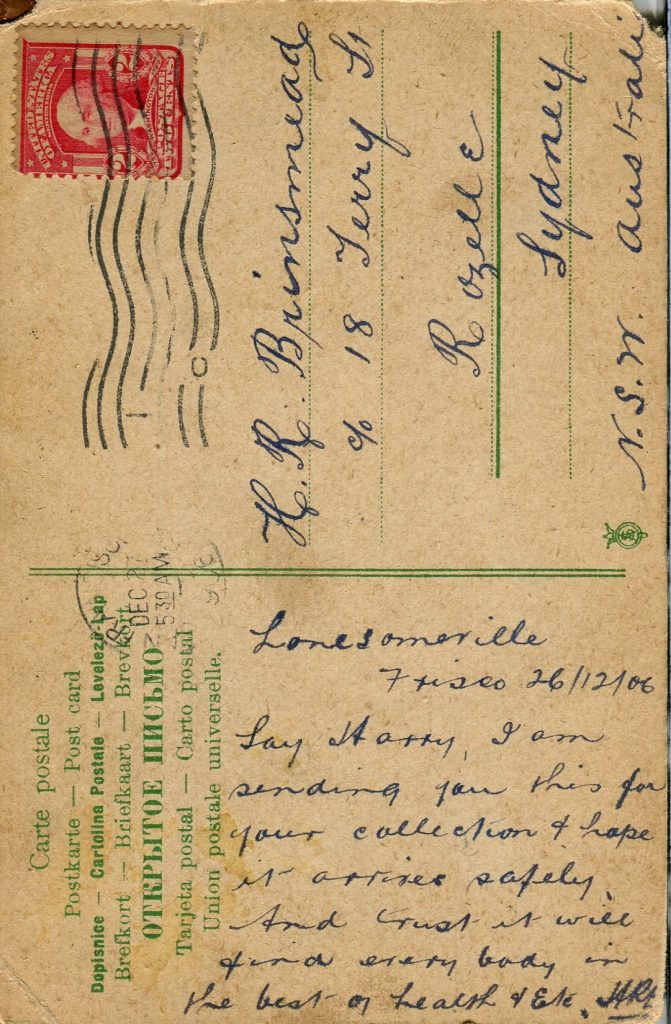 Carte postale
Postkarte — Post card
Dopisnice — Cartolina Postale — Levelező-Lap
Brefkort — Briefkaart — Brevkort
ОТКРЫТОЕ ПИСЬМО
Tarjeta postal — Carto postal
Union postale universelle.
Lonesomeville
Frisco 26/12/06
Say Harry, I am
sending you this for
your collection & hope
it arrives safely,
And trust it will
find every body in
the best of health & Etc.
UNITED STATES
OF AMERICA
POSTAGE
TWO CENTS
2 2
DEC
530 AM
H. R. Brinsmead
c/o 18 Terry St
Rozelle
Sydney
N.S.W. Australi